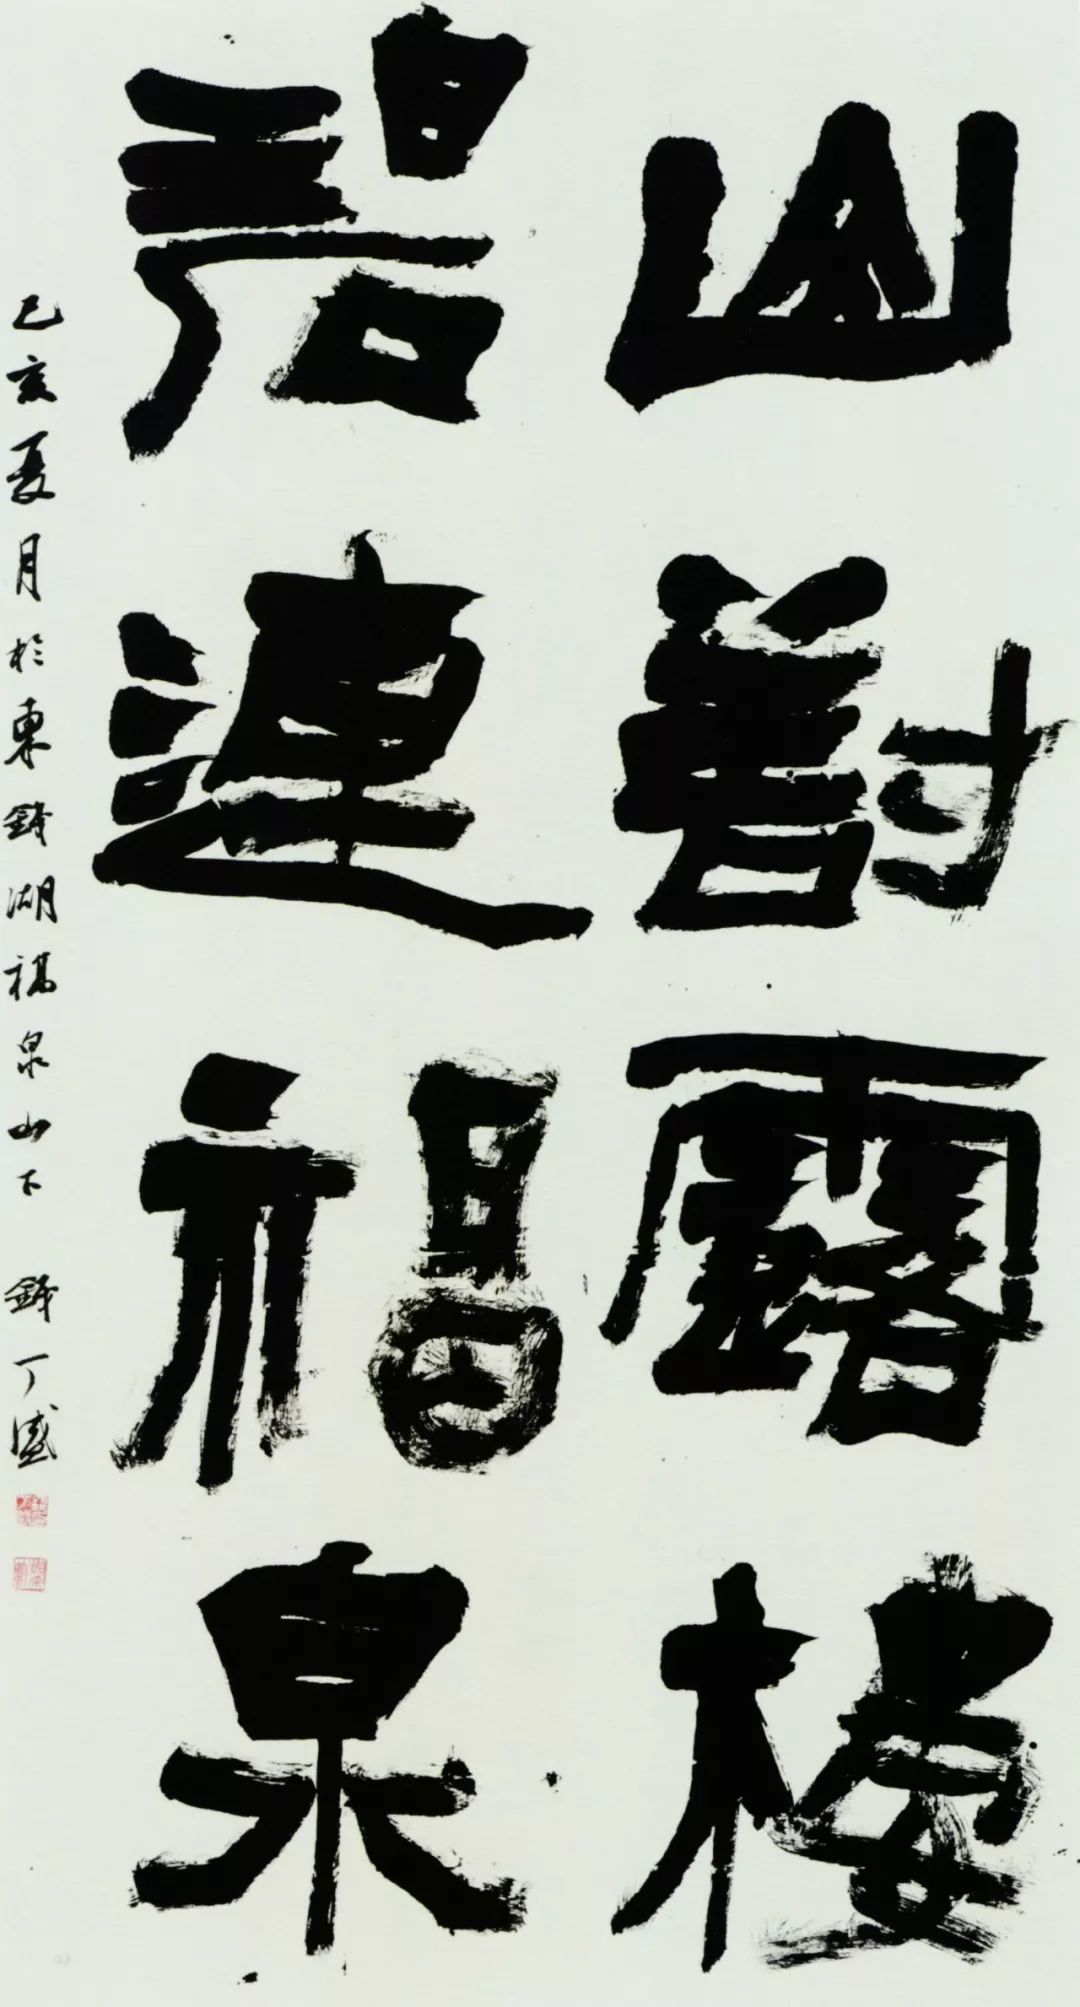 山對露樓
碧連福泉
己亥夏月於東錢湖福泉山下 錢丁盛